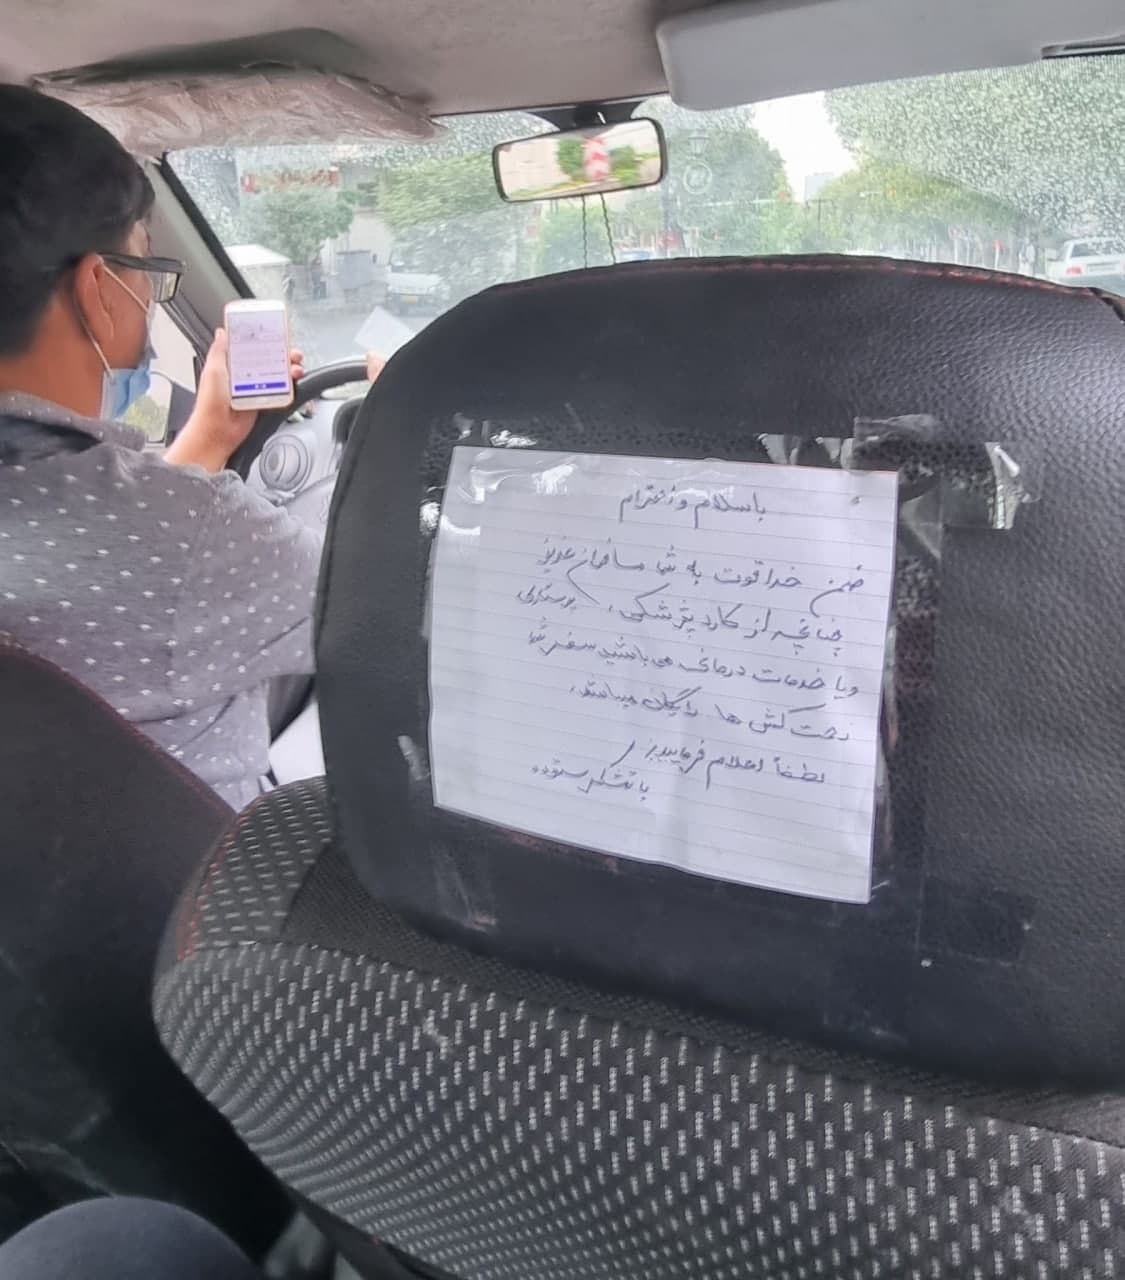 باسلام و احترام
ضمن خداقوت به شما مسافران عزیز
چنانچه از کادر پزشکی، پرستاری
و یا خدمات درمانی می باشید سفر شما
زحت کش ها رایگان میباشد،
لطفاً اعلام فرمایید.
با تشکر ستوده